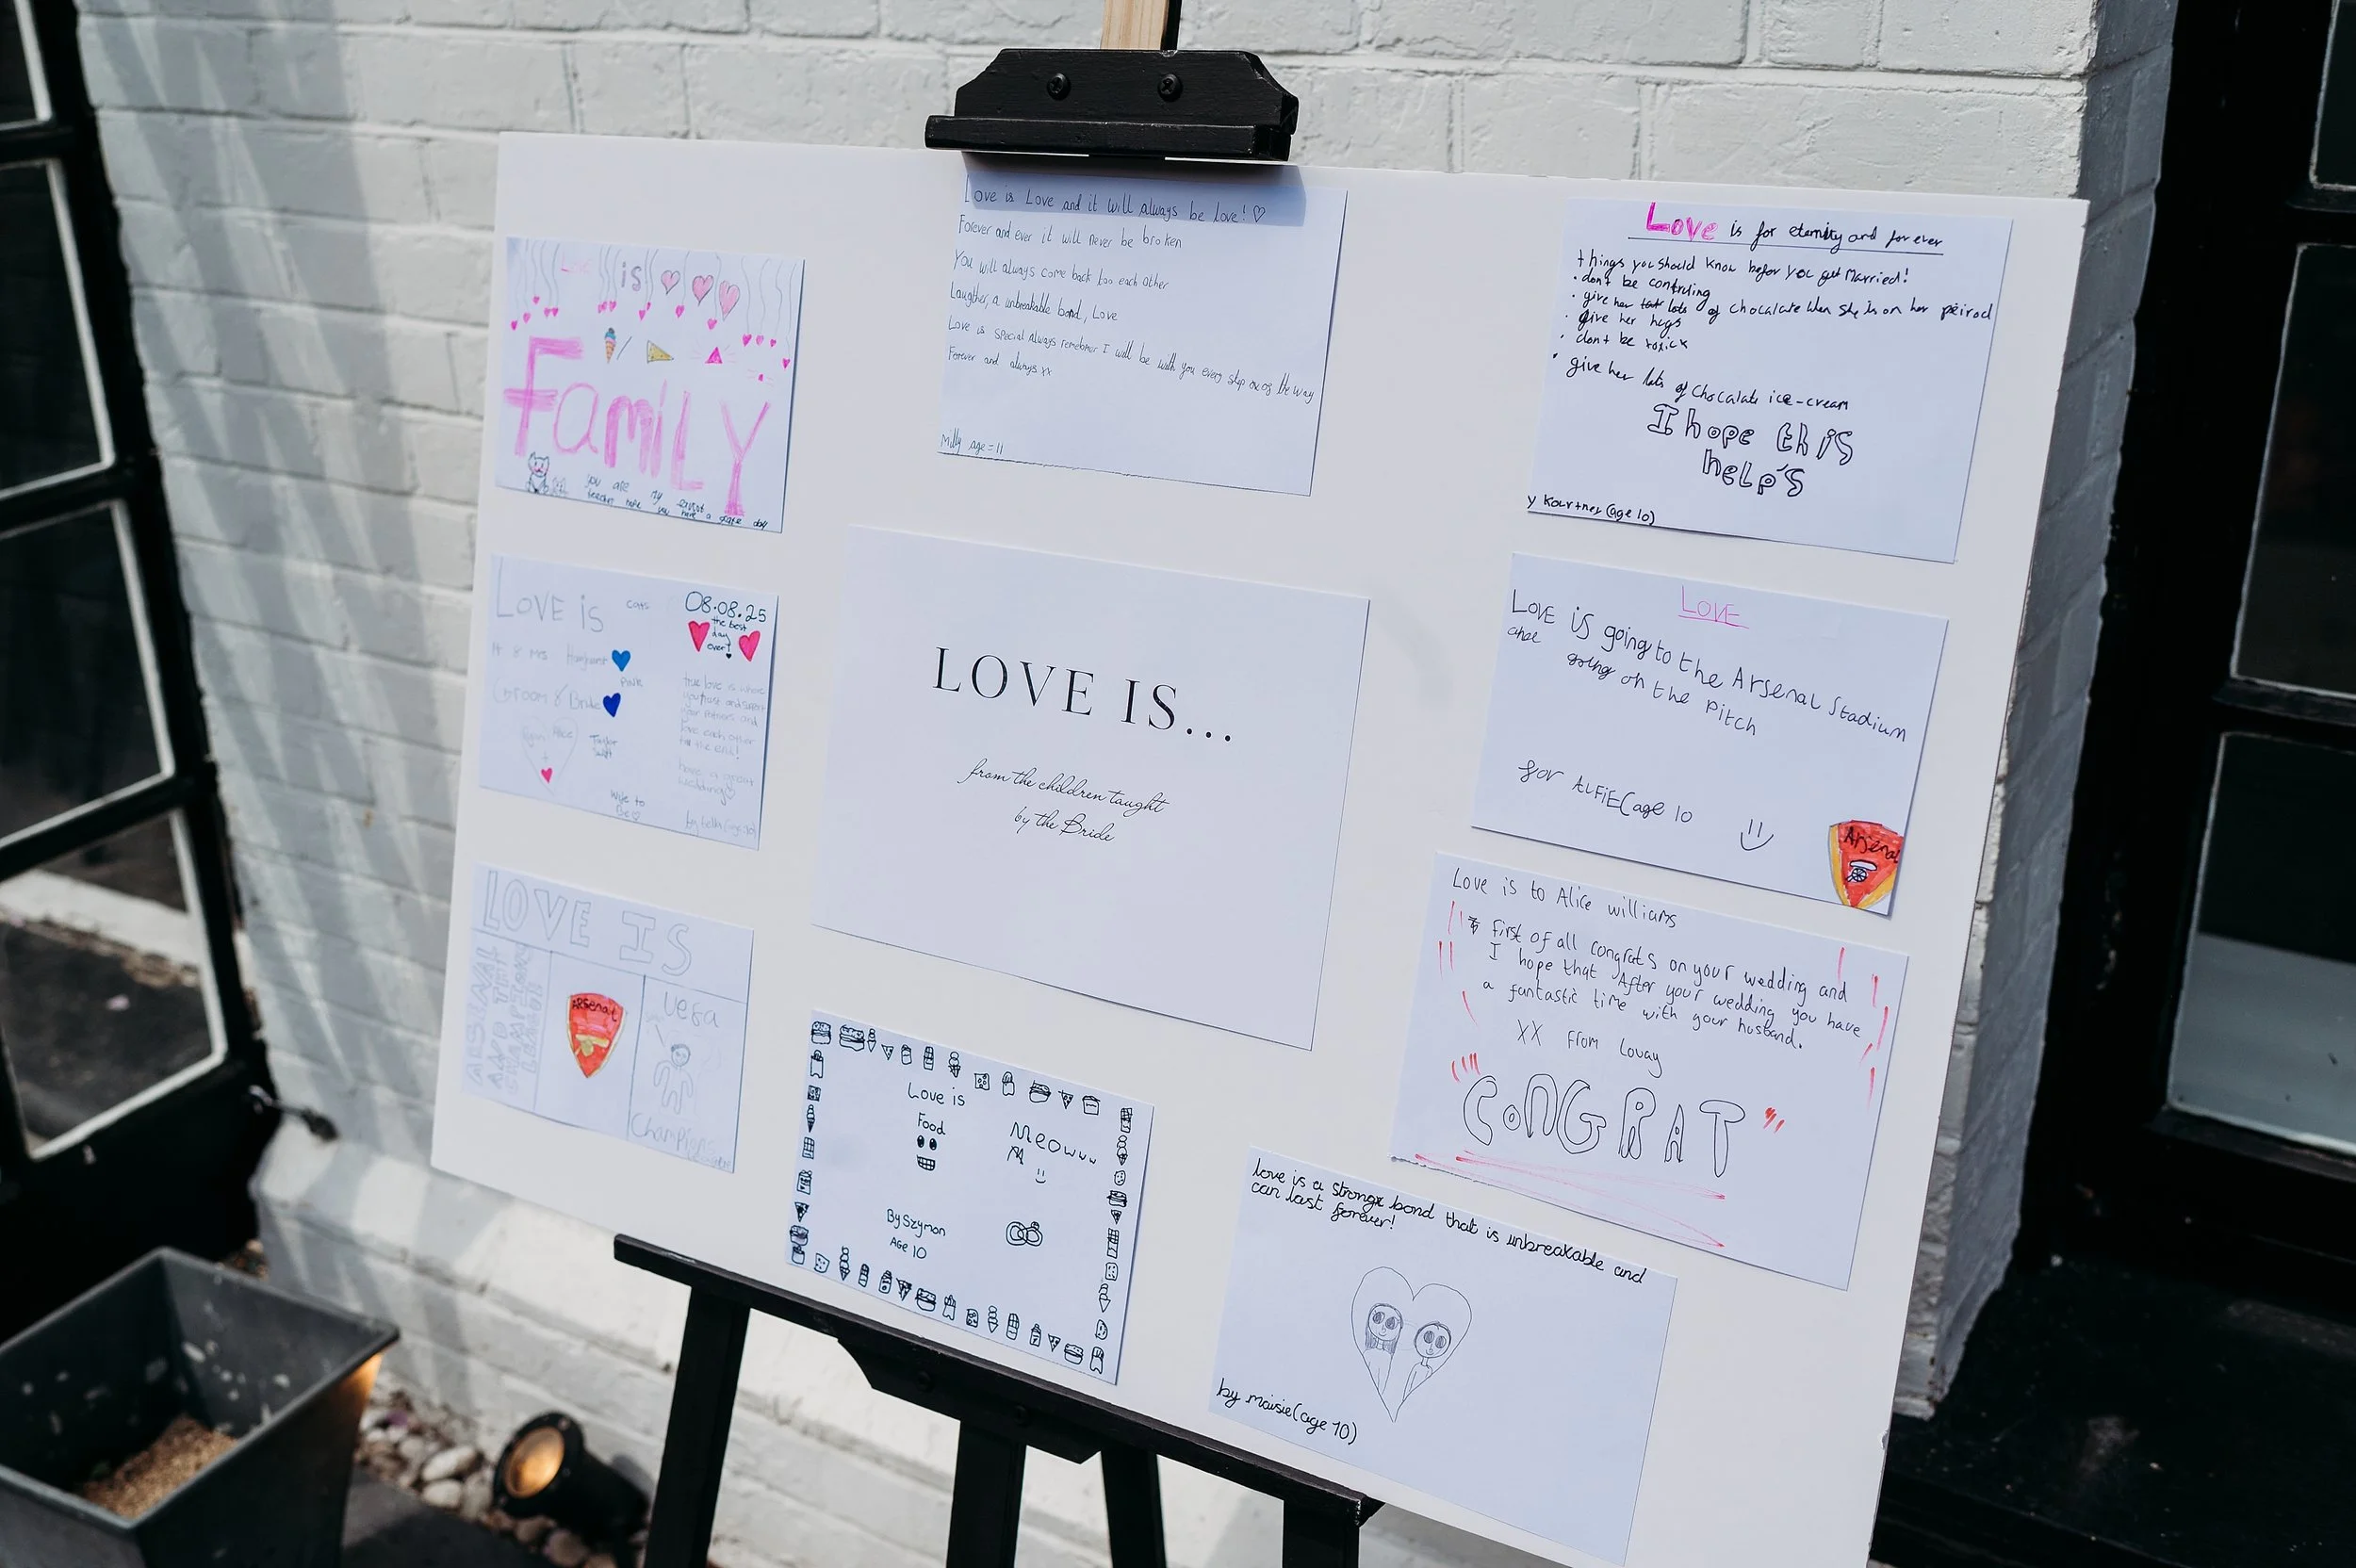 LOVE IS...
from the children taught
by the Bride
Love is
FamiLY
you are my
teacher hope you have a great day
Love is Love and it will always be Love!♡
Forever and ever it will never be broken
You will always come back too each other
Laughter, a unbreakable bond, Love
Love is special always remeber I will be with you every step of the way
Forever and always xx
Milly age = 11
Love is for eternity and for ever
things you should know befor you get Married!
· don't be contrling
· give her lots of chocalate when she is on her peirod
· give her hugs
· don't be toxick
· give her lots of chocalate ice-cream
I hope this
heLp's
y Kourtney (age 10)
LOVE iS
cats
08.08.25
the best
day
ever!
& Mrs
Pink
Groom & Bride
Alice
Taylor
Swift
Wife to
Be
true love is when
you trust and support
your partners and
love each other
till the end!
have a great
wedding♡
(age 10)
LOVE
LOVE iS going to the Arsenal Stadium
and going on the Pitch
for ALFiE(age 10
Arsenal
LOVE IS
ARSENAL
AND THE
CHAMPIONS
LEAGUE
ARSenal
Uefa
Champions
Love is
Food
Meowww
By Szymon
Age 10
Love is to Alice williams
first of all congrats on your wedding and
I hope that After your wedding you have
a fantastic time with your husband.
XX from Lovay
CONGRAT
love is a strong bond that is unbreakable and
can last forever!
by maisie(age 10)